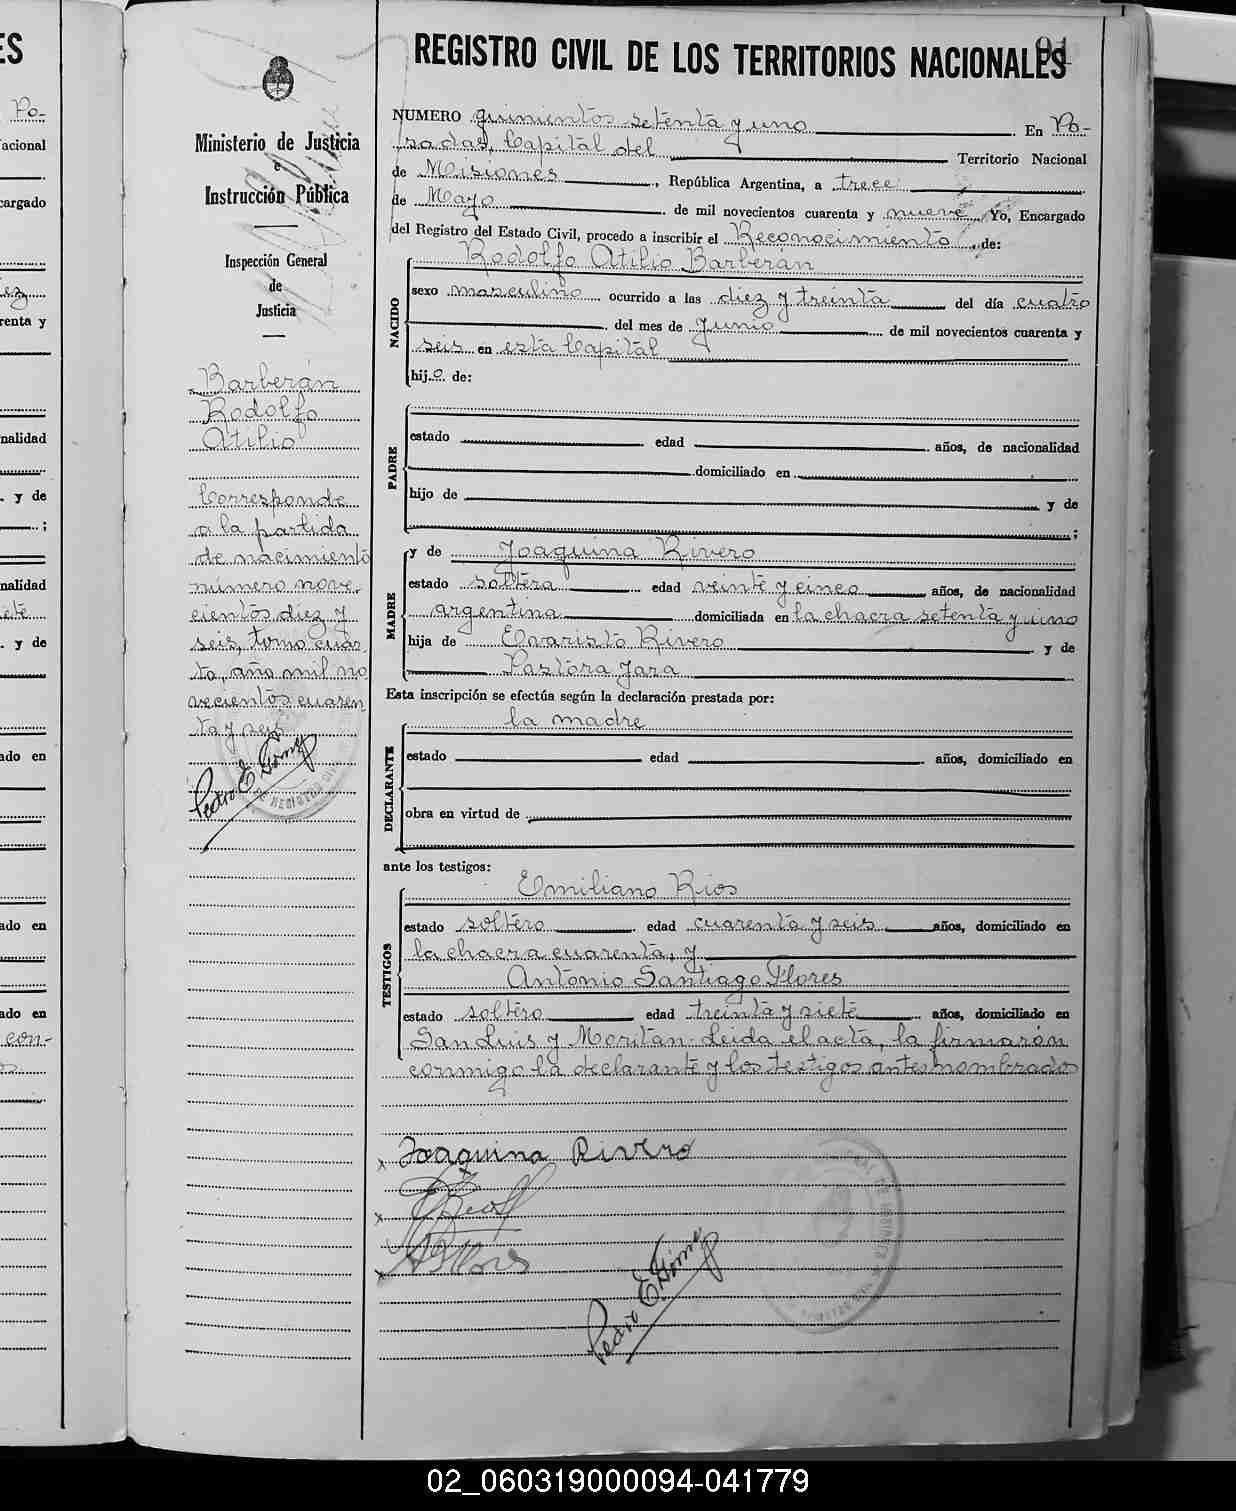 91
REGISTRO CIVIL DE LOS TERRITORIOS NACIONALES
Ministerio de Justicia
e
Instrucción Pública
Inspección General
de
Justicia
Barberán
Rodolfo
Atilio
Corresponde
a la partida
de nacimiento
número nove-
cientos diez y
seis, tomo cuar-
to, año mil no
vecientos cuaren
ta y seis
Pedro E. Gómez
NUMERO quinientos setenta y uno . En Po-
sadas, Capital del Territorio Nacional
de Misiones , República Argentina, a trece
de Mayo . de mil novecientos cuarenta y nueve , Yo, Encargado
del Registro del Estado Civil, procedo a inscribir el Reconocimiento , de:
NACIDO
Rodolfo Atilio Barberán
sexo masculino ocurrido a las diez y treinta del día cuatro
. del mes de Junio de mil novecientos cuarenta y
seis en esta Capital
hijo de:
PADRE
estado edad años, de nacionalidad
domiciliado en
hijo de y de
;
MADRE
y de Joaquina Rivero
estado soltera edad veinte y cinco años, de nacionalidad
argentina domiciliada en la chacra setenta y uno
hija de Evaristo Rivero y de
Pastora Jara
Esta inscripción se efectúa según la declaración prestada por:
DECLARANTE
la madre
estado edad años, domiciliado en
obra en virtud de
ante los testigos:
TESTIGOS
Emiliano Rios
estado soltero edad cuarenta y seis años, domiciliado en
la chacra cuarenta, y
Antonio Santiago Flores
estado soltero edad treinta y siete años, domiciliado en
San Luis y Moritán. Leida el acta, la firmarón
conmigo la declarante y los testigos antes nombrados
Joaquina Rivero
Pedro E. Gómez
02_060319000094-041779